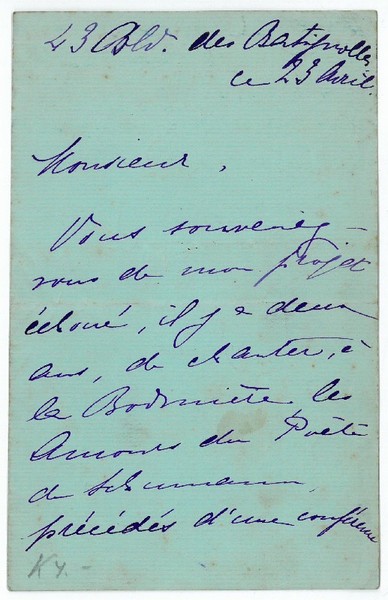 43 Bld. des Batignolles
ce 23 Avril.
Monsieur,
Vous souvenez-
vous de mon projet
échoué, il y a deux
ans, de chanter, à
la Bodinière, les
Amours du Poète
de Schumann,
précédés d'une conférence